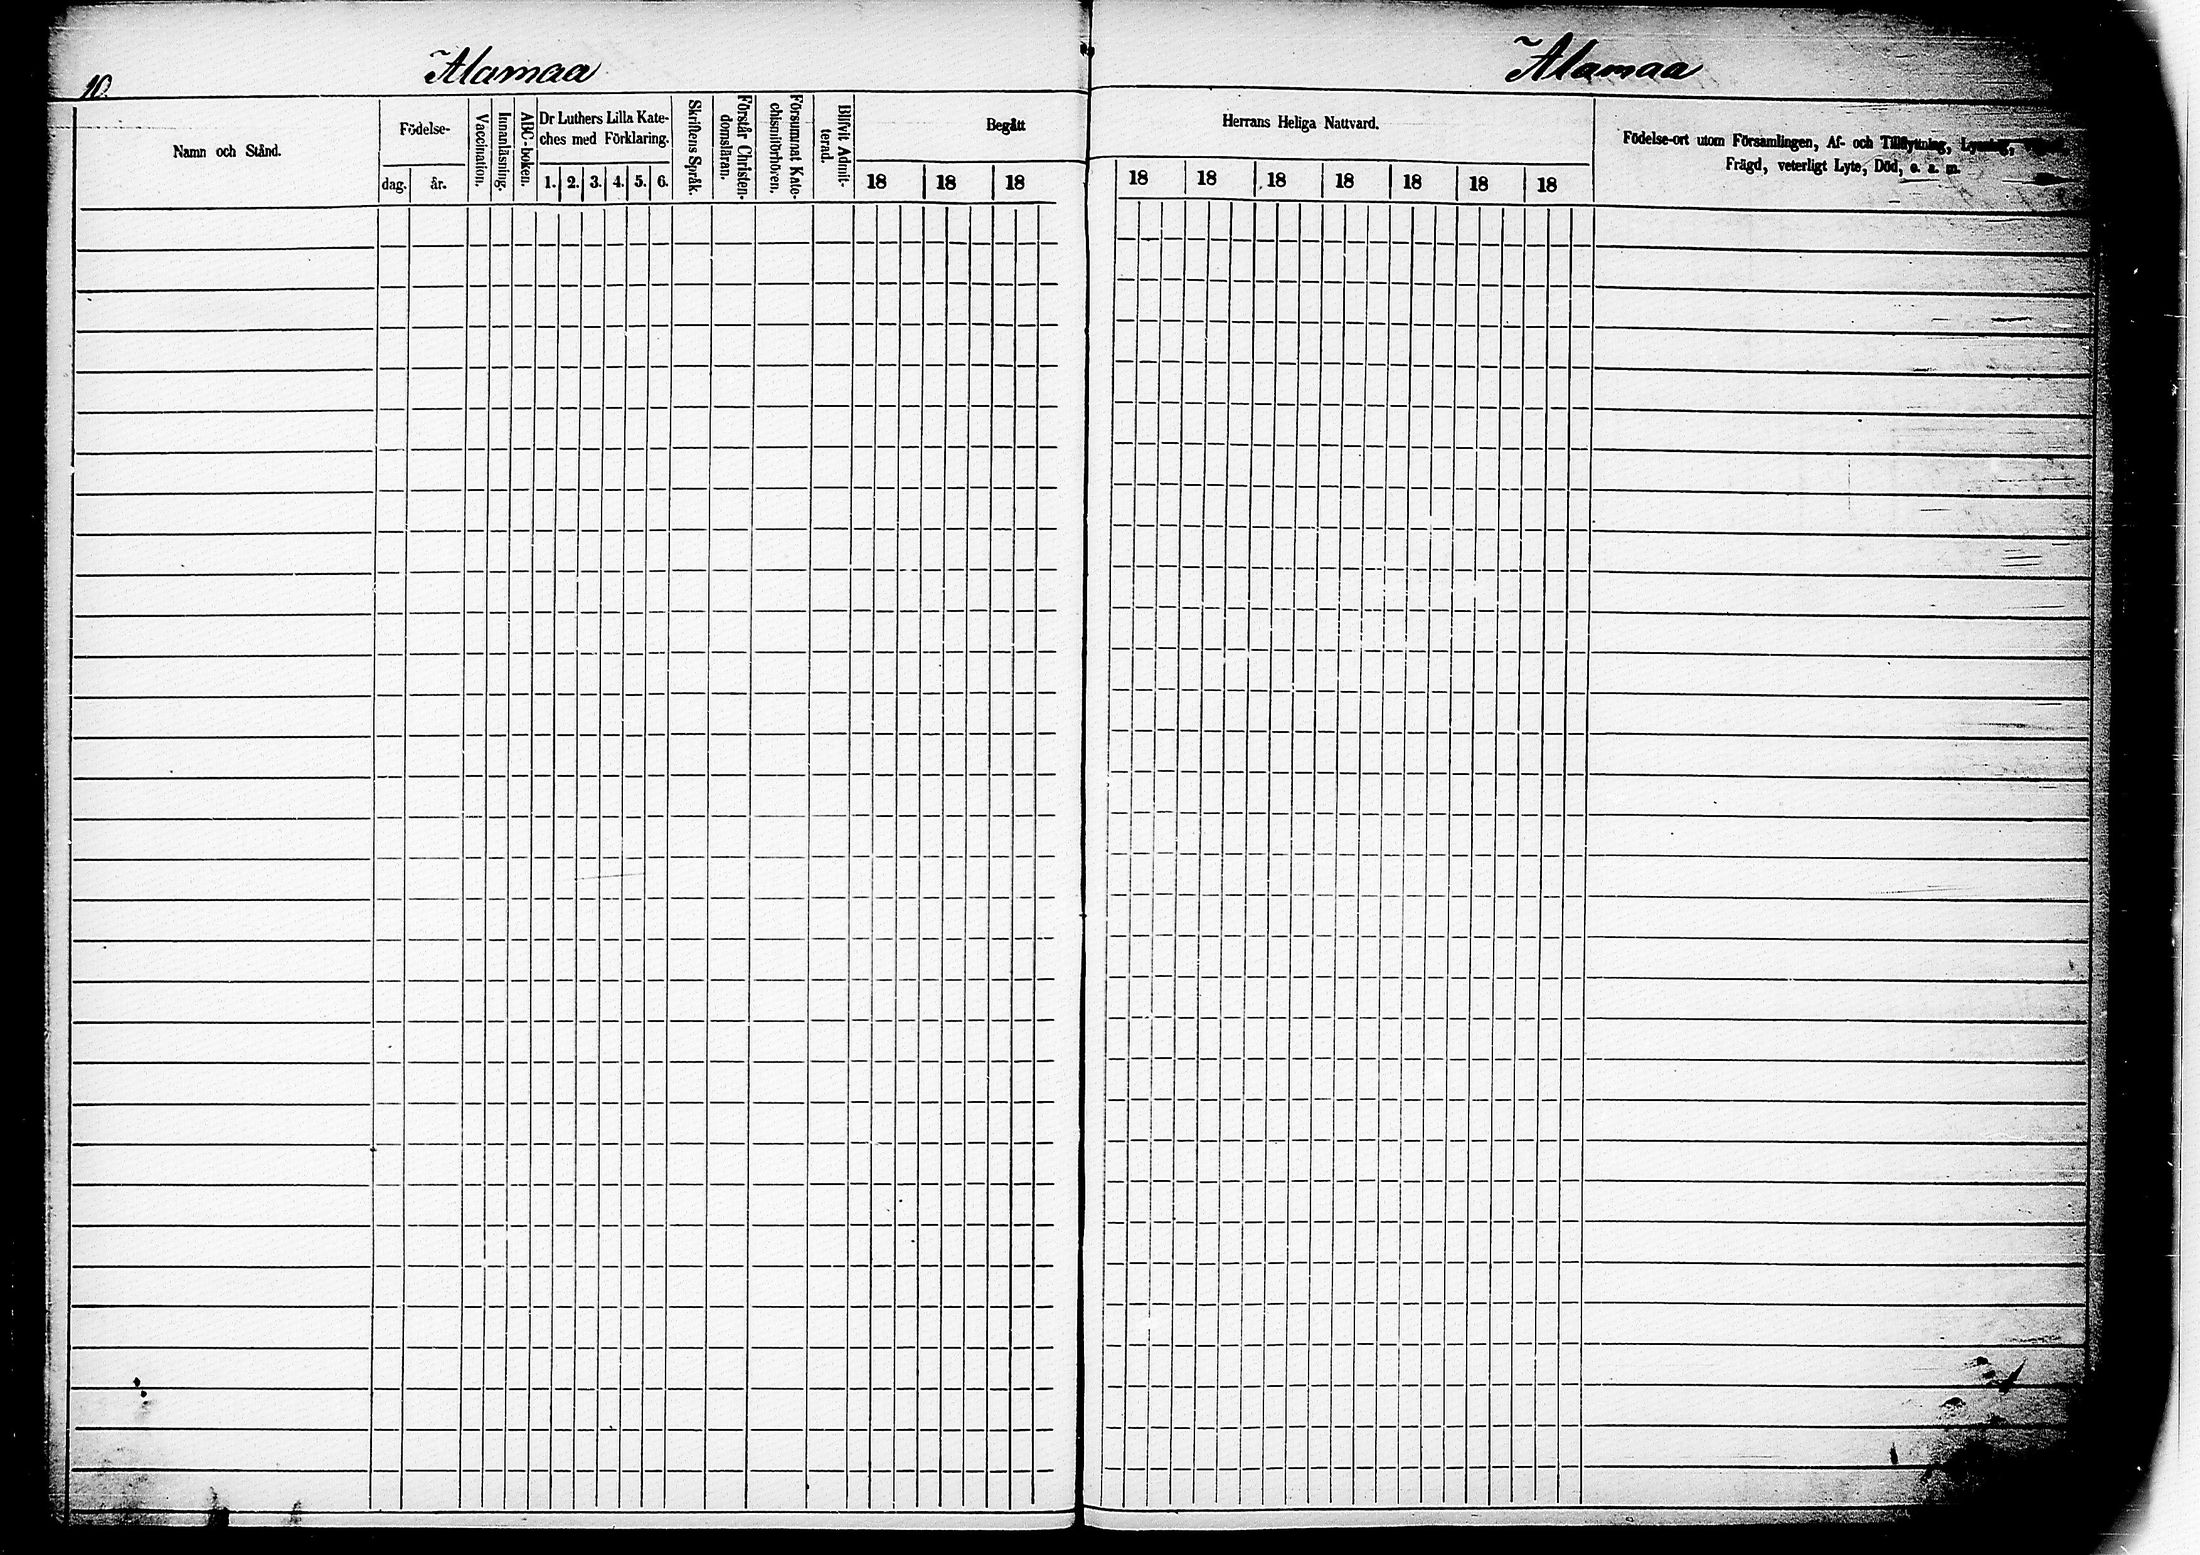 10.
Alamaa
Alamaa
Namn och Stånd.
Födelse-
dag. år.
Vaccination.
Innanläsning.
ABC-boken.
Dr Luthers Lilla Kate-
ches med Förklaring.
1. 2. 3. 4. 5. 6.
Skriftens Språk.
Förstår Christen-
domsläran.
Försummat Kate-
chismiförhören.
Blifvit Admit-
terad.
Begått
18 18 18
Herrans Heliga Nattvard.
18 18 18 18 18 18 18
Födelse-ort utom Församlingen, Af- och Tillflyttning, Lysning,
Frägd, veterligt Lyte, Död, o. a. m.